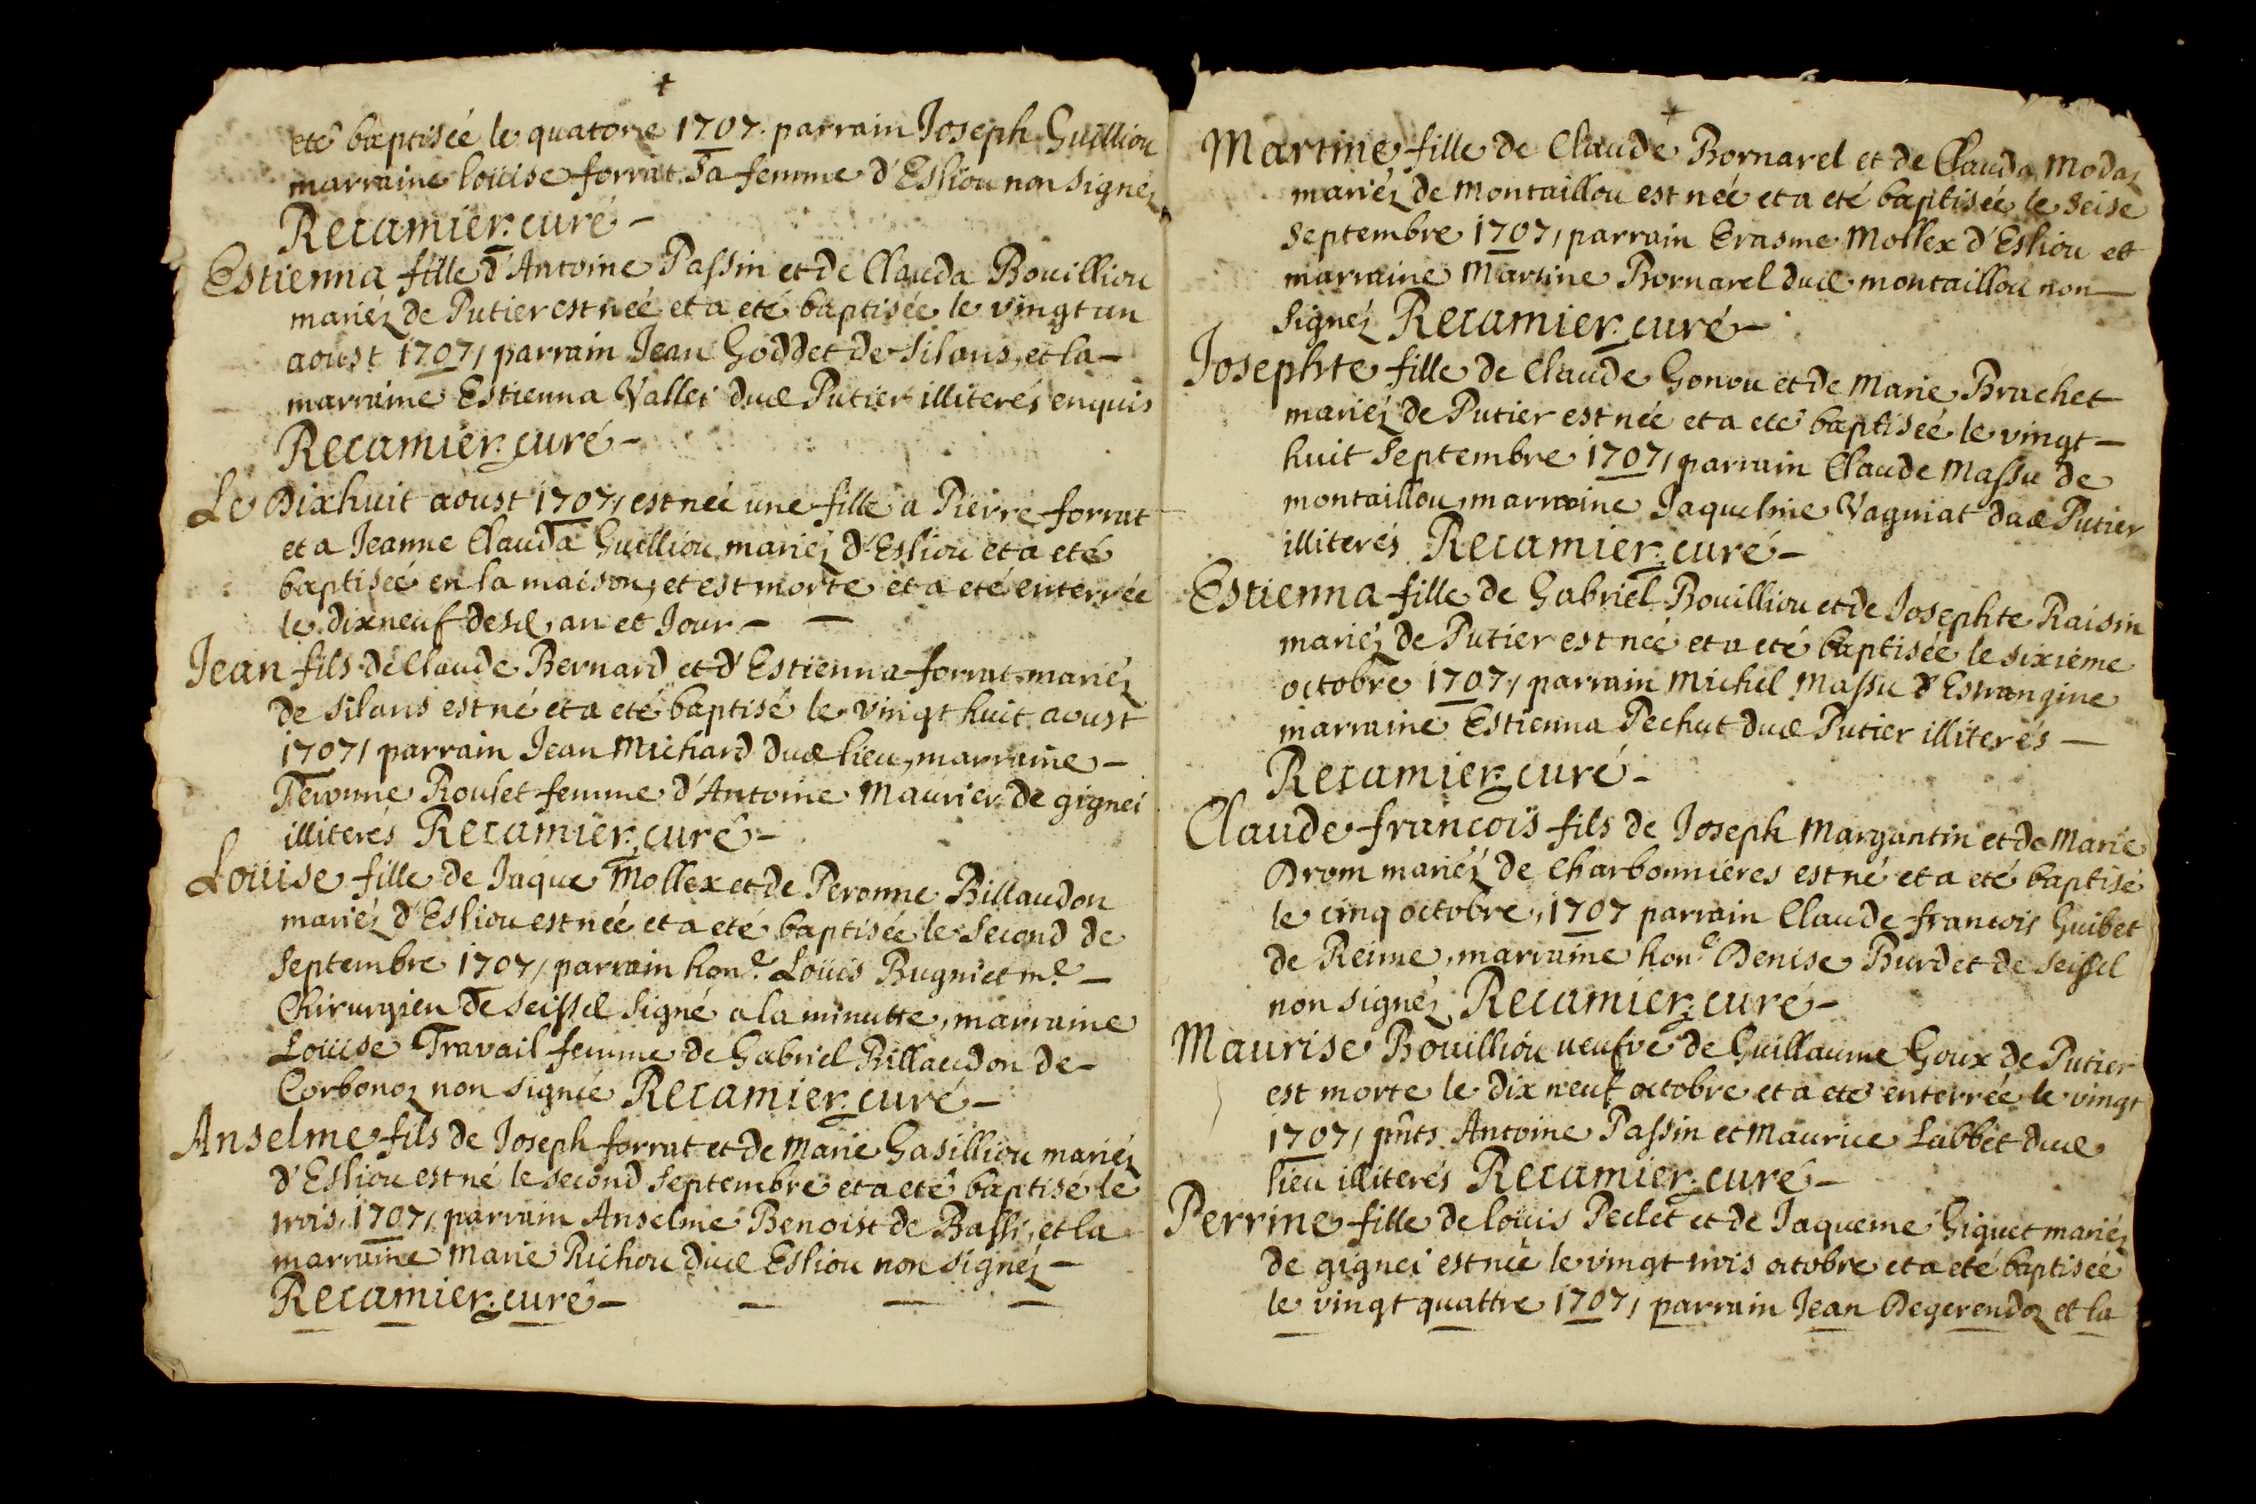 eté baptisée le quatorse 1707. parrain Joseph Guilliou
marraine loüise forrat sa femme d'Esliou non signéz
Recamier curé –
Estienna fille d'Antoine Passin et de Clauda Bouilliou
mariéz de Putier est née et a eté baptisée le vingt un
aoust 1707, parrain Jean Goddet de Silans, et la –
marraine Estienna Vallei dud Putier illiterés enquis
Recamier curé –
Le Dixhuit aoust 1707, est née une fille a Pierre forrat
et a Jeanne Clauda Guilliou mariéz d'Esliou et a eté
baptisée en la maison, et est morte et a eté enterrée
le dixneuf desd. an et Jour – –
Jean fils de Claude Bernard et d'Estienna forrat mariéz
de Silans est né et a eté baptisé le vingt huit aoust
1707, parrain Jean Michard dud lieu, marraine –
Roulet femme d'Antoine Maurier de gignei
illiterés Recamier curé –
Loüise fille de Jaque Mollex et de Peronne Billaudon
mariéz d'Esliou est née et a eté baptisée le second de
Septembre 1707, parrain hon.e Loüis Bugniet m.e –
Chirurgien de Seissel signé a la minutte, marraine
Loüise Travail femme de Gabriel Billaudon de –
Corbonoz non signée Recamier curé –
Anselme fils de Joseph forrat et de Marie Gasilliou mariéz
d'Esliou est né le second Septembre et a eté baptisé le
trois 1707, parrain Anselme Benoist de Bassi, et la
marraine Marie Richou dud Esliou non signéz –
Recamier curé – – – –
Martine fille de Claude Bornarel et de Clauda Modaz
mariéz de montaillou est née et a eté baptisée le seise
Septembre 1707, parrain Erasme Mollex d'Esliou et
marraine Martine Bornarel dud montaillou non –
signéz Recamier curé –
Josephte fille de Claude Gonou et de Marie Brachet
mariéz de Putier est née et a eté baptisée le vingt –
huit Septembre 1707, parrain Claude Massu de
montaillou, marraine Jaqueline Vagniat dud Putier
illiterés Recamier curé –
Estienna fille de Gabriel Bouilliou et de Josephte Raisin
mariéz de Putier est née et a eté baptisée le sixieme
octobre 1707, parrain Michel Massu d'Estrangine
marraine Estienna Pechut dud Putier illiterés –
Recamier curé –
Claude françois fils de Joseph Margantin et de Marie
Drom mariéz de Charbonniéres est né et a eté baptisé
le cinq octobre, 1707 parrain Claude francois Guibet
de Reime, marraine hon.e Denise Burdet de Seissel
non signéz Recamier curé –
Maurise Bouilliou veufve de Guillaume Goux de Putier
est morte le dix neuf octobre et a eté enterrée le vingt
1707, pnts Antoine Passin et Maurice Labbet dud
lieu illiterés Recamier curé –
Perrine fille de loüis Peclet et de Jaqueme Giguet mariéz
de gignei est née le vingt trois octobre et a eté baptisée
le vingt quattre 1707, parrain Jean Degerendoz et la